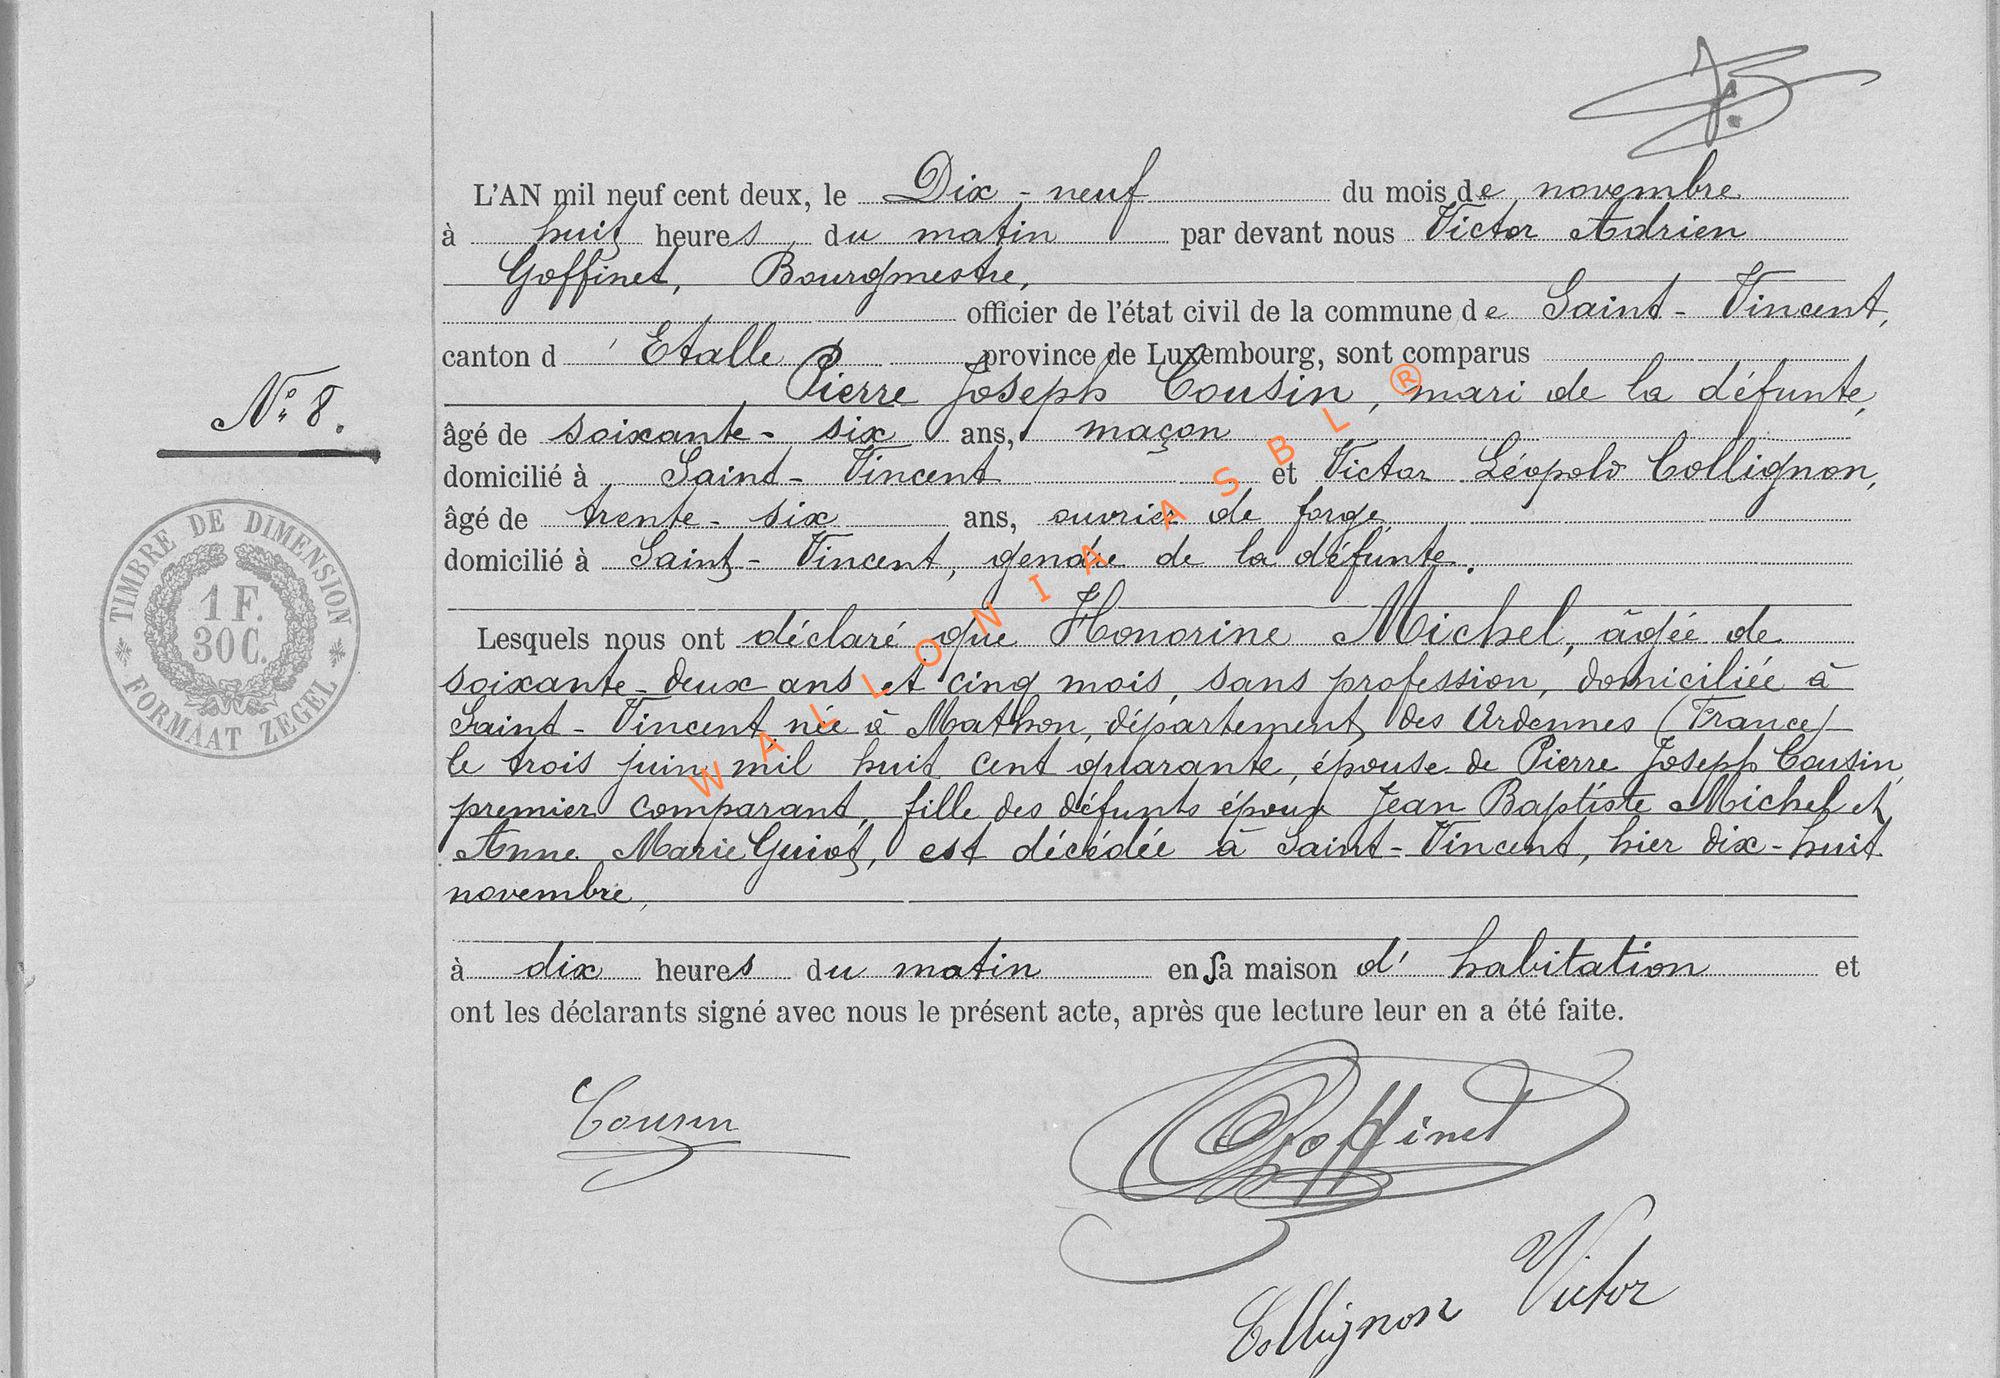 L'AN mil neuf cent deux, le Dix-neuf du mois de novembre
à huit heures du matin par devant nous Victor Adrien
Goffinet, Bourgmestre,
officier de l'état civil de la commune de Saint-Vincent,
canton d'Etalle province de Luxembourg, sont comparus
Pierre Joseph Cousin, mari de la défunte,
âgé de soixante-six ans, maçon
domicilié à Saint-Vincent et Victor Léopold Collignon,
âgé de trente-six ans, ouvrier de forge,
domicilié à Saint-Vincent, gendre de la défunte.
Lesquels nous ont déclaré que Honorine Michel, âgée de
soixante-deux ans et cinq mois, sans profession, domiciliée à
Saint-Vincent née à Mathon, département des Ardennes (France)
le trois juin mil huit cent quarante, épouse de Pierre Joseph Cousin,
premier comparant, fille des défunts époux Jean Baptiste Michel et
Anne Marie Guiot, est décédée à Saint-Vincent, hier dix-huit
novembre,
à dix heures du matin en sa maison d'habitation et
ont les déclarants signé avec nous le présent acte, après que lecture leur en a été faite.
N° 8.
TIMBRE DE DIMENSION
1 F.
30 C.
FORMAAT ZEGEL
WALLONIA ASBL ®
Cousin
Goffinet
Collignon Victor